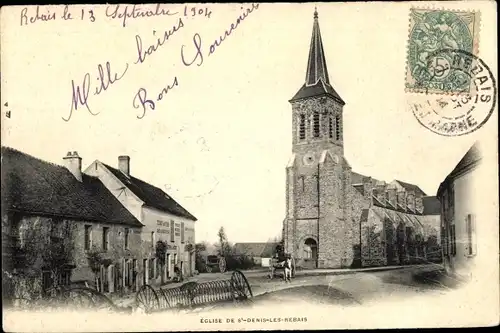 Rebais le 13 Septembre 1904
Mille baisers
Bons Souvenirs
REBAIS
ET-MARNE
ÉGLISE DE St-DENIS-LES-REBAIS